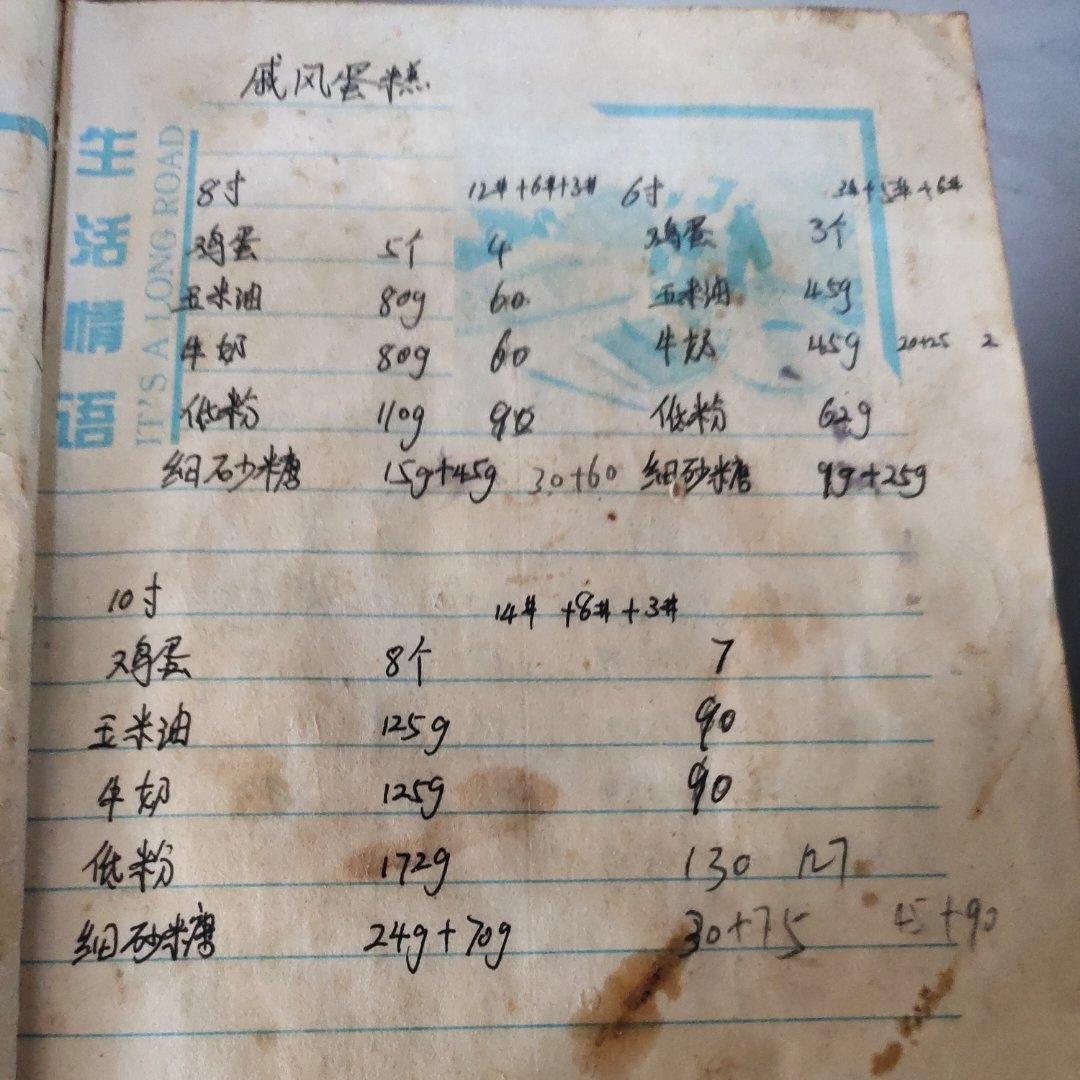 戚风蛋糕
生活情语
IT'S A LONG ROAD
8寸 12#+6#+3#
鸡蛋 5个 4
玉米油 80g 60
牛奶 80g 60
低粉 110g 90
细砂糖 15g+45g 30+60
6寸 3#+5#+6#
鸡蛋 3个
玉米油 45g
牛奶 45g 20+25 2
低粉 62g
细砂糖 9g+25g
10寸 14#+8#+3#
鸡蛋 8个 7
玉米油 125g 90
牛奶 125g 90
低粉 172g 130 127
细砂糖 24g+70g 30+75 45+90